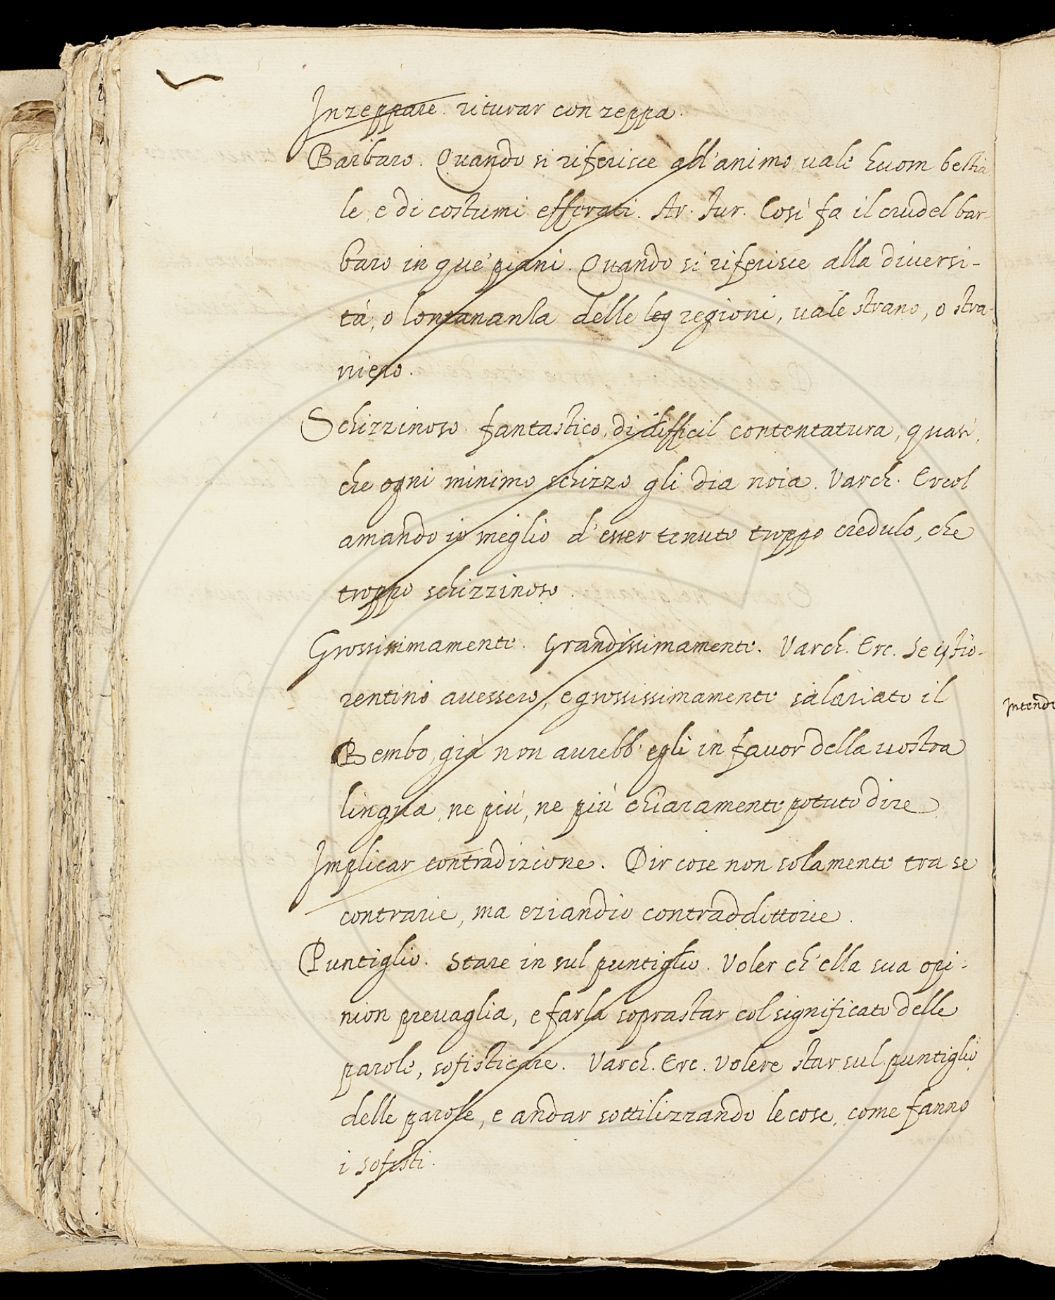 Inzeppare. riturar con zeppa.
Barbaro. Quando si riferisce all'animo vale huom bestia
le, e di costumi efferati. Ar. fur. Così fa il crudel bar-
baro in que' piani. Quando si riferisce alla diversi-
tà, o lontananza delle leg regioni, vale strano, o stra-
niero.
Schizzinoso fantastico, di difficil contentatura, quasi,
che ogni minimo schizzo gli dia noia. Varch. Ercol
amando io meglio d'esser tenuto troppo credulo, che
troppo schizzinoso.
Grossissimamente. Grandissimamente. Varch. Erc. Se i fio-
rentini avessero, e grossissimamente salariato il
Bembo, già non aurebb'egli in favor della vostra
lingua, ne più, ne più chiaramente potuto dire
Implicar contradizione. Dir cose non solamente tra se
contrarie, ma eziandio contraddittorie.
Puntiglio. Stare in sul puntiglio. Voler ch'ella sua opi-
nion prevaglia, e farla soprastar col significato delle
parole, sofisticare. Varch. Erc. Volere star sul puntiglio
delle parole, e andar sottilizzando le cose, come fanno
i sofisti.